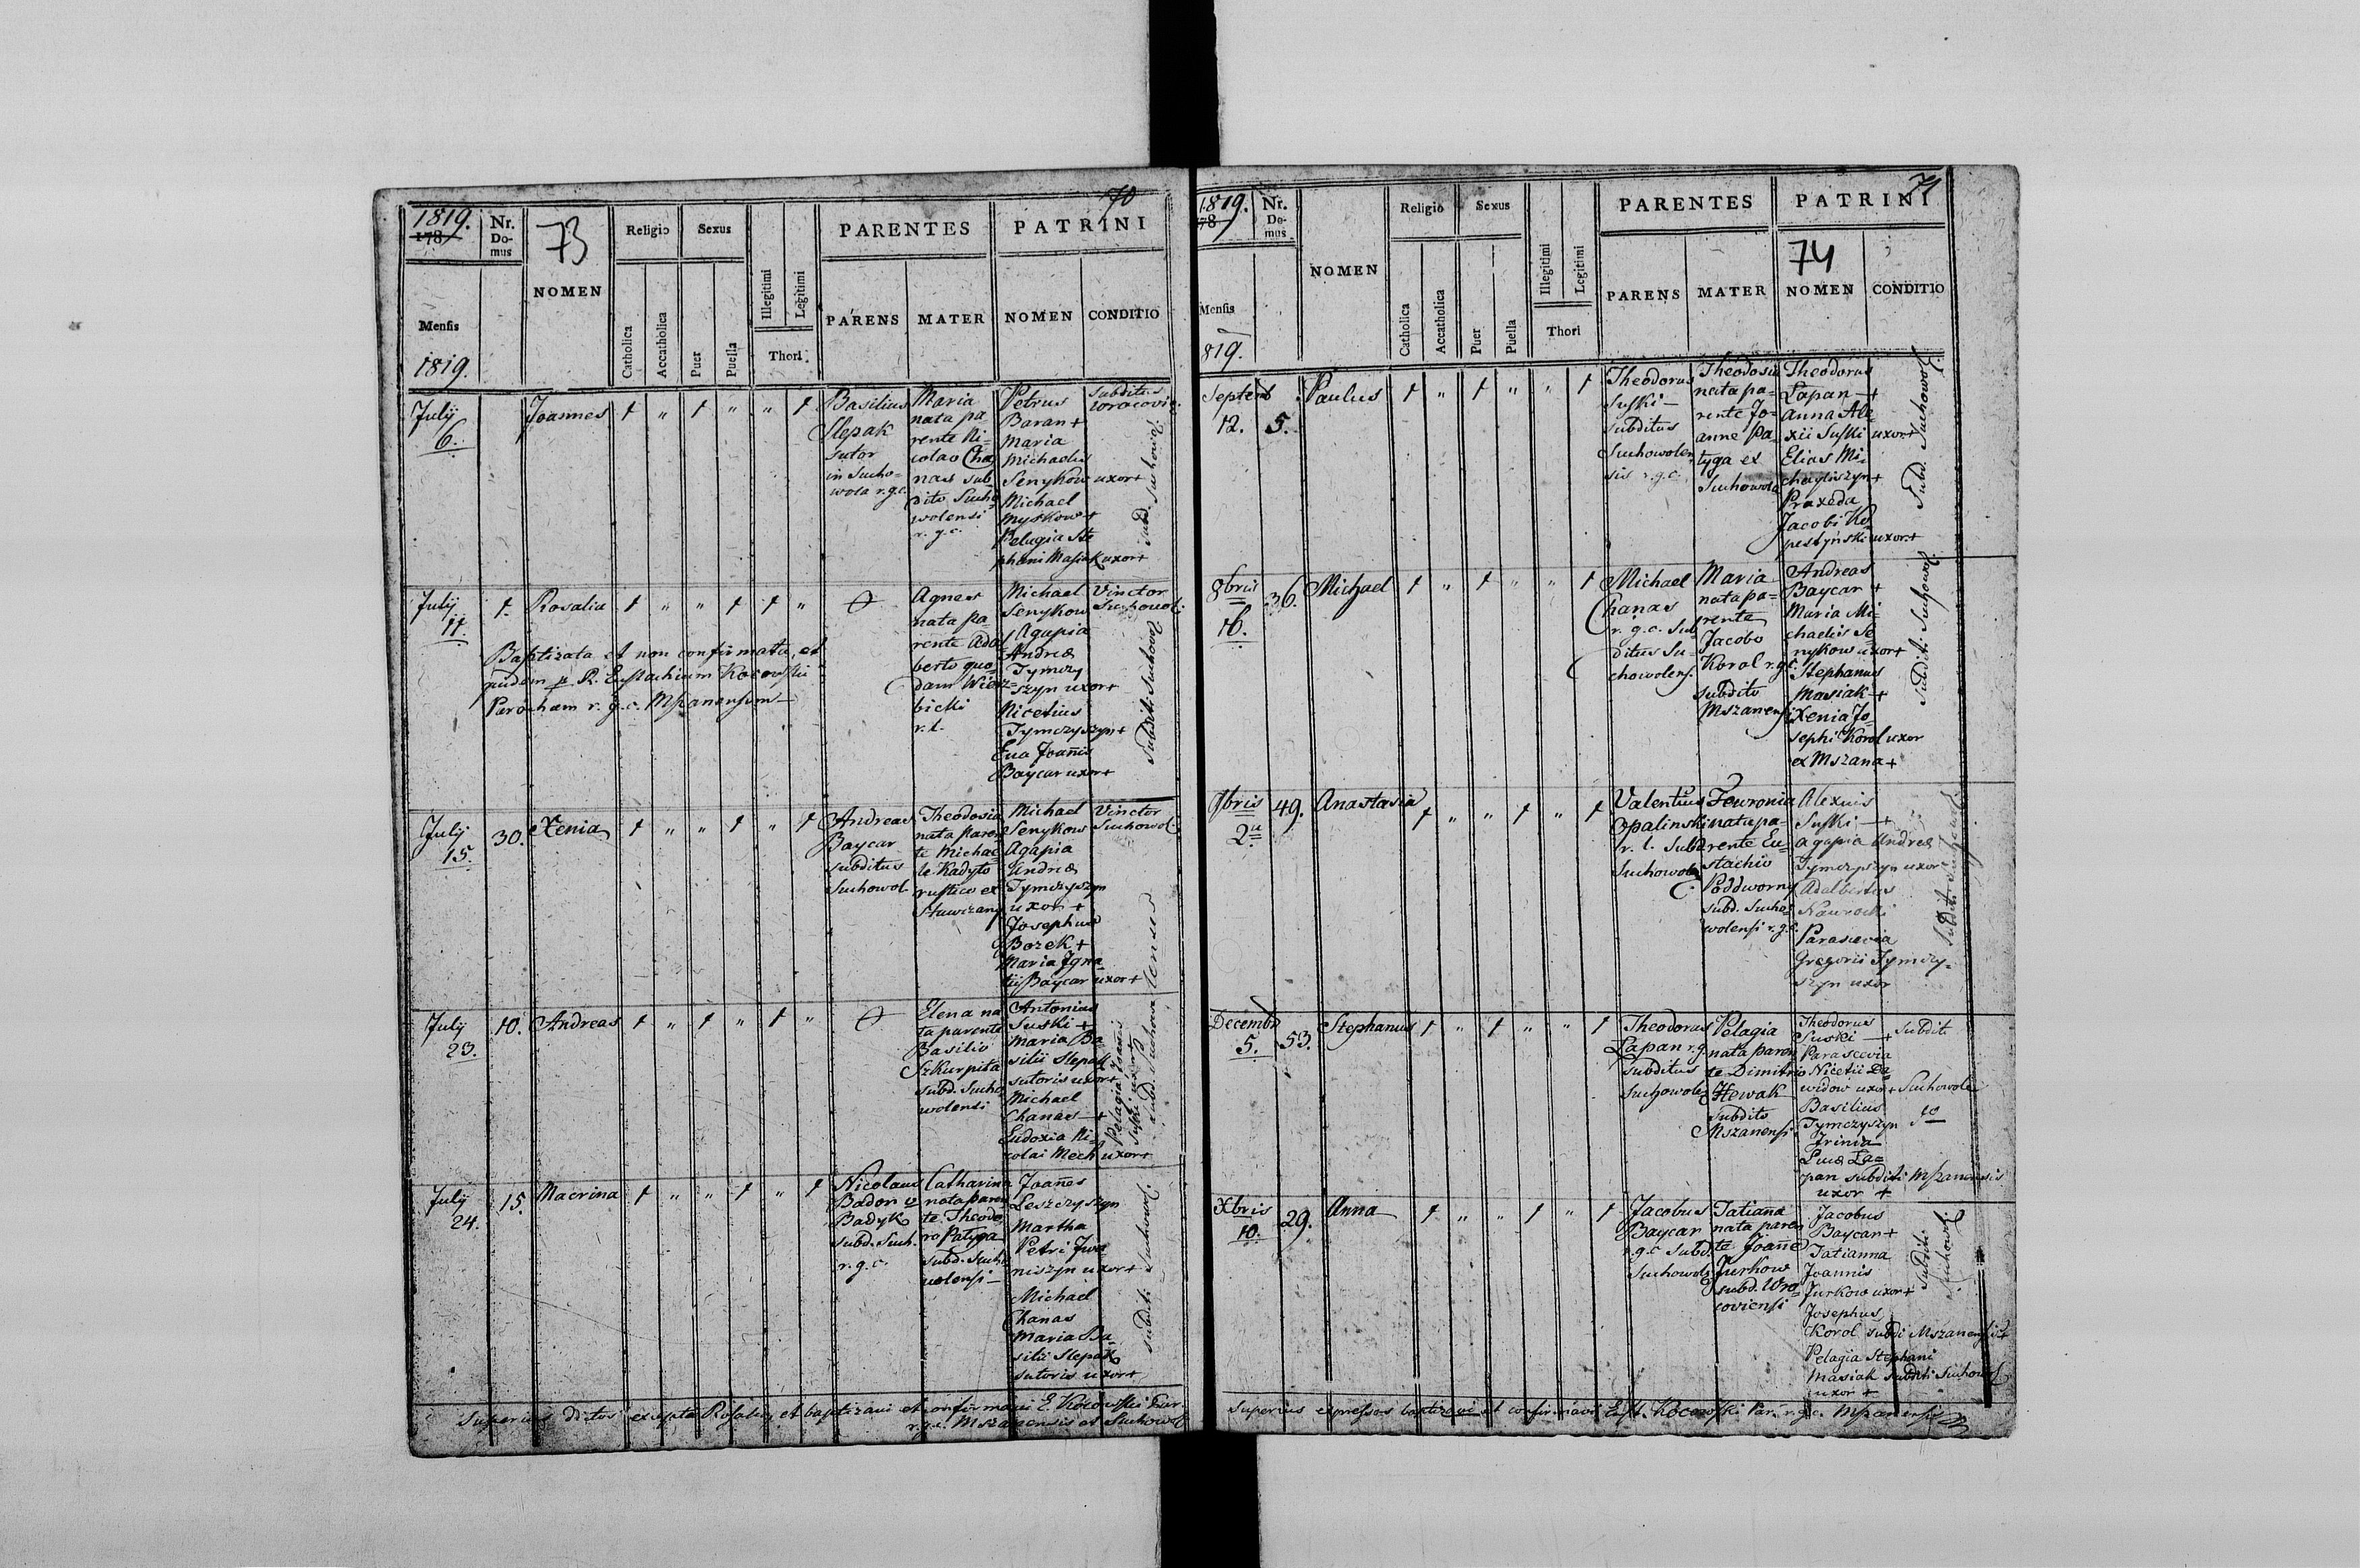 70
1819.
178
Nr. Do-mus
73
NOMEN
Religio
Sexus
PARENTES
PATRINI
Mensis
1819.
Catholica
Accatholica
Puer
Puella
Illegitimi
Legitimi
Thori
PARENS
MATER
NOMEN
CONDITIO
July
6.
Joannes
Basilius
Slepak
sutor
in Sucho-
wola r.g.c.
Maria
nata pa
rente Ni-
colao Cha
nas sub-
dito Sucho
wolensi
r. g. c.
Petrus
Baran +
Maria
Michaelis
Senykow uxor+
Michael
Myskow +
Pelagia Ste
phani Masiak uxor+
subditus
Subd. Suchowol
July
11.
1.
Rosalia
Baptizata et non confirmata, et
quidem p R. Eustachium Kocowski
Parocham r. g. c. Mszanensem
Agnes
nata pa-
rente Ada
berto quo-
dam Wierz-
bicki
r. l.
Michael
Senykow
Agapia
Andreæ
Tymczy
szyn uxor+
Nicetius
Tymczyszyn+
Eva Joannis
Baycar uxor+
Vinctor
Suchowol:
Subditi Suchowol
July
15.
30.
Xenia
Andreas
Baycar
subditus
Suchowol.
Theodosia
nata paren
te Michae-
le Kadyto
rustico ex
Michael
Senykow
Agapia
Andreæ
Tymczyszyn
uxor +
Josephus
Bozek +
Maria Igna-
tii Baycar uxor+
Vinctor
Suchowol
July
23.
10.
Andreas
Elena na
ta parente
Basilio
Szkurpita
subd. Sucho
wolensi
Antonius
Suski +
Maria Ba
silii Slepak
sutoris uxor+
Michael
Chanas +
Eudoxia Ni-
colai Mech uxor+
Pelagia Joannis
Suski uxor+
subd. Suchowolenses
July
24.
15.
Macrina
Nicolaus
Badon v
Badyk
subd. Such.
r. g. c.
Catharina
nata paren
te Theodo
ro Patyga
subd. Sucho
wolensi
Joañes
Leszczyszyn
Martha
Petri Iwa
niszyn uxor+
Michael
Chanas
Maria Ba-
silii Slepak
sutoris uxor+
subditi Suchowol.
Superius dictos excepta Rosalia, et baptizavi et confirmavi E. Kocowski Par.
r.g.c. Mszanensis et Suchowol
71
1819.
78
Nr. Do-mus
NOMEN
Religio
Sexus
PARENTES
PATRINI
74
Mensis
819.
Catholica
Accatholica
Puer
Puella
Illegitimi
Legitimi
Thori
PARENS
MATER
NOMEN
CONDITIO
Septemb
12.
5.
Paulus
Theodorus
Suski
subditus
Suchowolen
sis r.g.c.
Theodosia
nata pa-
rente Jo-
anne Pa-
tyga ex
Suchowola
Theodorus
Lapan +
Anna Ale
xii Suski uxor+
Elias Mi
chayliszyn+
Praxeda
Jacobi Ko
pestynski uxor+
Subd. Suchowol.
8bris
16.
36.
Michael
Michael
Chanas
r. g. c. sub
ditus Su-
chowolens.
Maria
nata pa-
rente
Jacobo
Korol r.g.c.
subdito
Mszanensi
Andreas
Baycar +
Maria Mi-
chaelis Se-
nykow uxor+
Stephanus
Masiak +
Xenia Jo-
sephi Korol uxor
ex Mszana+
Subditi Suchowol.
9bris
2
49.
Anastasia
Valentius
Opalinski
r. l. Subd
Suchowole
Fewronia
nata pa-
rente Eu-
stachio
Poddworny
subd. Sucho
wolensi r.g.c.
Alexius
Suski +
Agapia Andreæ
Tymczyszyn uxor
Adalbertus
Nawrocki
Parascevia
Gregorii Tymczy-
szyn uxor
Subditi Suchowol.
Decembr
5.
53.
Stephanus
Theodorus
Lapan r.g.
subditus
Suchowole
Pelagia
nata paren
te Dimitrio
Howak
subdito
Mszanensi
Theodorus
Suski +
Parascevia
Nicetii Da-
widow uxor+
Basilius
Tymczyszyn
Irinia
Lucæ La=
pan subditi Mszanensis
uxor +
Subditi
Suchowole
Xbris
10.
29.
Anna
Jacobus
Baycar
r.g.c subd.
Suchowole
Tatiana
nata paren
te Joanne
Jurkow
subd. Wro
coviensi
Jacobus
Baycar+
Tatianna
Joannis
Jurkow uxor+
Josephus
Korol subdi Mszanensis+
Pelagia Stephani
Masiak subditi Suchowol
uxor +
Subditi
Suchowol.
Superius expressos baptizavi et confirmavi Eust. Kocowski Par. r. g. c. Mszanensis